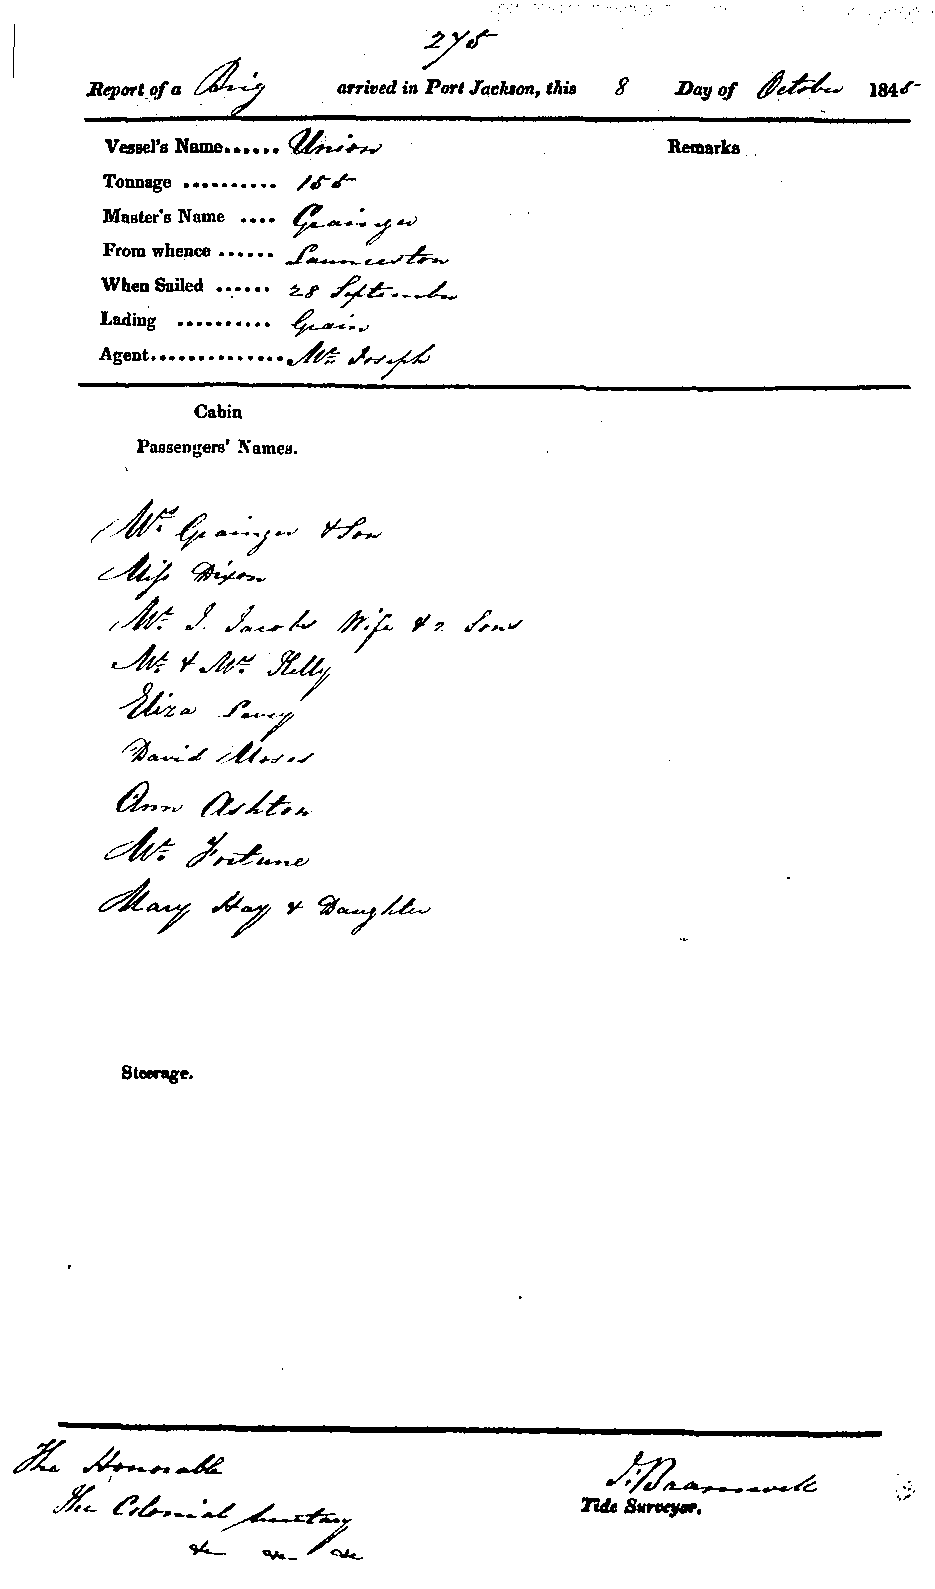 275
Report of a Brig arrived in Port Jackson, this 8 Day of October 1845
Vessel's Name...... Union Remarks
Tonnage .......... 155
Master's Name .... Grainger
From whence ...... Launceston
When Sailed ...... 28 September
Lading .......... Grain
Agent.............. Mr Joseph
Cabin
Passengers' Names.
Mrs Grainger & Son
Miss Dixon
Mr J. Jacobs Wife & 2 Sons
Mr & Mrs Kelly
Eliza
David Moses
Ann Ashton
Mr Fortune
Mary Hay & Daughter
Steerage.
The Honorable
The Colonial Secretary
&c &c &c
Tide Surveyor.